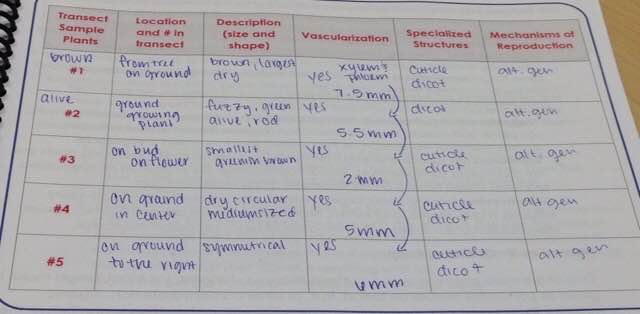 Transect Sample Plants
Location and # in transect
Description (size and shape)
Vascularization
Specialized Structures
Mechanisms of Reproduction
brown
#1
from tree
on ground
brown, largest
dry
yes
xylem &
phloem
7.5mm
cuticle
dicot
alt. gen
alive
#2
ground
growing
plant
fuzzy, green
alive, rod
yes
5.5mm
dicot
alt. gen
#3
on bud
on flower
smallest
brown
yes
2mm
cuticle
dicot
alt. gen
#4
on ground
in center
dry circular
medium sized
yes
5mm
cuticle
dicot
alt gen
#5
on ground
to the right
symmetrical
yes
6mm
cuticle
dicot
alt gen